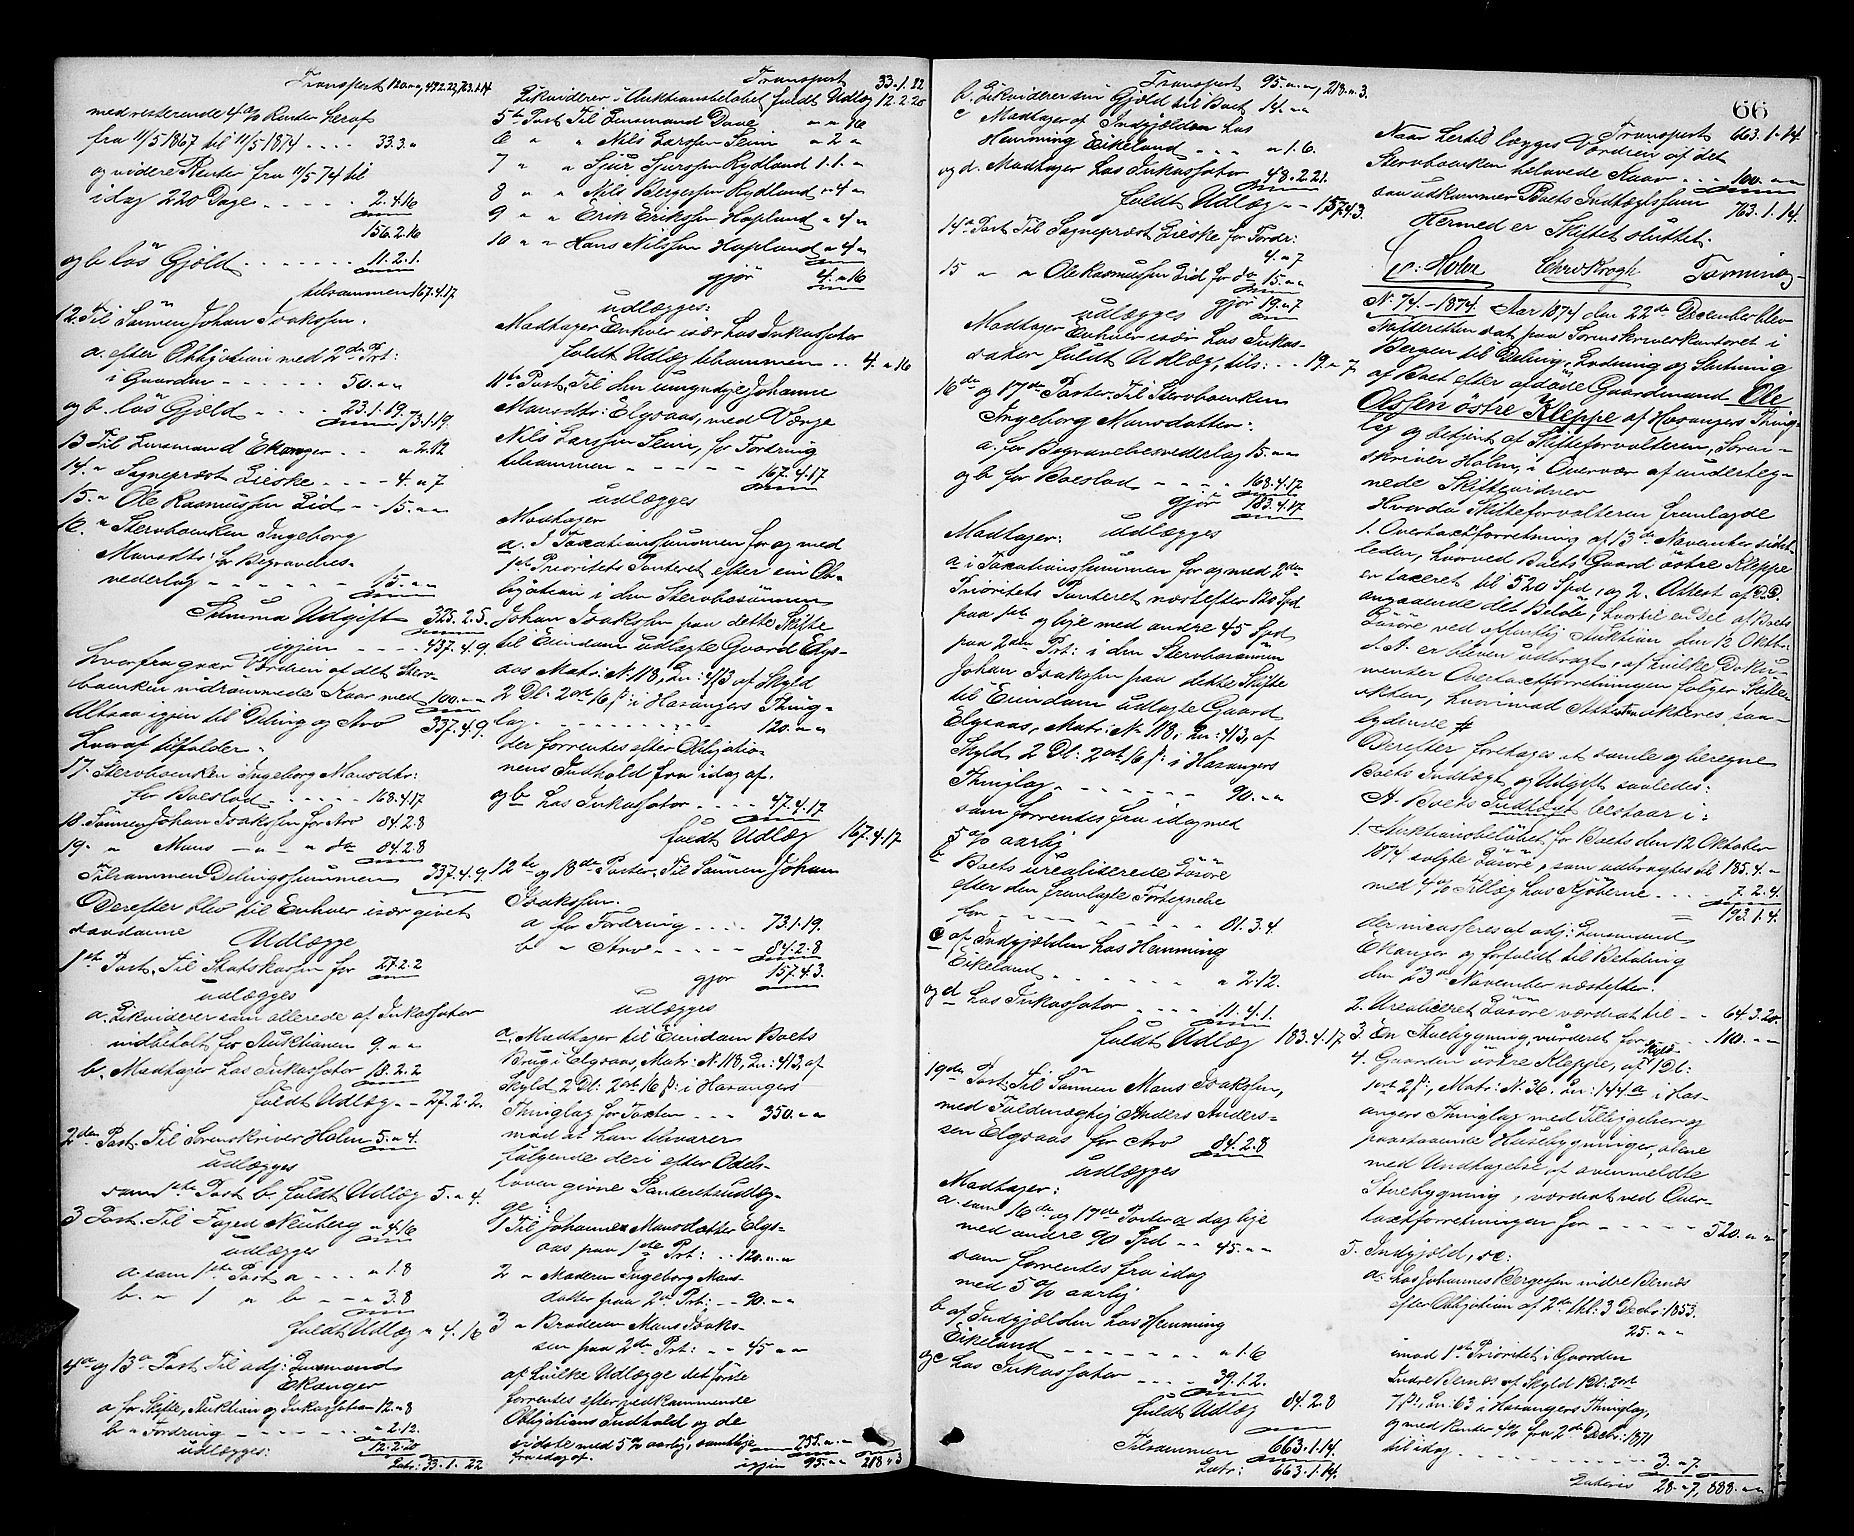 Transport 120.,, 492.22, 763.1.14
med resterende 4% Renter heraf
fra 11/5 1867 til 11/5 1874 .... 33.3.,,
og videre Renter fra 11/5 74 til
idag 220 Dage ..... 2.4.16
156.2.16
og b. løs Gjæld ....... 11.2.1.
tilsammen 167.4.17
12. Til Sønnen Johan Isaksen.
a. efter Obligation med 2den Prt:
i Gaarden ..... 50.,,.,,
og b. løs Gjæld .... 23.1.19. 73.1.19.
13 Til Lensmand Ekanger .. ,, 2.12
14. ,, Sognepræst Zieske .... 4.,,7
15. ,, Ole Rasmussen Eid .. 15.,,.,,
16. ,, Stervboenken Ingeborg
Mansdtr: for Begravelses-
vederlag ..... 15.,,.,,
Summa Udgift 325.2.5.
igjen .... 437.4.9.
hvorfra gaar Værdien af det Sterv-
boenken indrømmede Kaar med 100.,,.,,
Altsaa igjen til Deling og Arv 337.4.9.
hvoraf tilfalder:
17. Stervboenken Ingeborg Mansdtr:
for Boeslod ..... 168.4.17
18. Sønnen Johan Isaksen for Arv 84.2.8
19. ,, Mans - ,, - ,, do 84.2.8
Tilsammen Delingssummen 337.4.9.
Derefter blev til Enhver især givet
saadanne Udlægge
1ste Post. Til Statskassen for 27.2.2
udlægges
a. Likviderer som allerede af Inkassator
indbetalt for Auktionen 9.,,.,,
b. Modtager hos Inkassator 18.2.2
fuldt Udlæg .. 27.2.2.
2den Post. Til Sorenskriver Holm 5.,,4.
udlægges
som 1ste Post b. fuldt Udlæg 5.,,4.
3 Post. Til Foged Neuberg ,,4.16
udlægges
a. som 1ste Post a ... ,,1.8
b. ,, 1 ,, b .. ,,3.8
fuldt Udlæg ,,4.16
4de og 13de Post. Til adj: Lensmand
Ekanger
a for Skifte, Auktion og Inkassator 12.,,8
b ,, Fordring ..... ,,2.12.
udlægges: 12.2.20
Latr: 33.1.22
Transport 33.1.22
Likviderer i Auktionsbeløbet fuldt Udlæg 12.2.20
5te Post Til Lensmand Daae ,, ,,16
6 ,, ,, Nils Larssen Seim ,,2.,,
7 ,, ,, Sjur Sjurssen Rydland 1.1.,,
8 ,, ,, Nils Børgessen Rydland ,,4.,,
9 ,, ,, Erik Erikssen Hopland ,,4.,,
10 ,, ,, Hans Nilssen Hopland ,,4.,,
gjør 4.,,16
udlægges:
Modtager Enhver især hos Inkassator
fuldt Udlæg tilsammen .. 4.,,16
11te Post. Til den umyndige Johanne
Mansdtr: Elgsaas, med Værge
Nils Larssen Seim, for Fordring
tilsammen ..... 167.4.17
udlægges
Modtager
a. I Taxationssummen for og med
1ste Prioritets Panteret efter ein Ob-
ligation i den Stervbosønnen
Johan Isaksen paa dette Skifte
til Eiendom udlagte Gaard Elgs-
aas Matr: N. 118, Ln: 413 af Skyld
2 Dl: 2 ort 16 ß: i Hosangers Thing-
lag ....... 120.,,.,,
der forrentes efter Obligatio-
nens Indhold fra idag af.
og b hos Inkassator .... 47.4.17
fuldt Udlæg 167.4.17
12te og 18de Poster. Til Sønnen Johan
Isaksen.
a for Fordring .... 73.1.19.
b ,, Arv ..... 84.2.8
gjør 157.4.3.
udlægges
a. Modtager til Eiendom Boets
Brug i Elgsaas, Matr: N. 118, Ln: 413, af
Skyld 2 Dl: 2 ort 16 ß: i Hosangers
Thinglag for Taxten ... 350.,,.,,
mod at han tilsvarer
følgende deri efter Odels-
loven givne Panteretsudlæg-
ge:
1 Til Johanne Mansdatter Elgs-
aas paa 1ste Prt: .. 120.,,.,,
2 ,, Moderen Ingeborg Mans-
datter paa 2den Prt: .. 90.,,.,,
3 ,, Broderen Mans Isaks-
sen paa 2den Prt: .. 45.,,.,,
af hvilke Udlægge det første
forrentes efter vedkommende
Obligations Indhold og de
sidste med 5% aarlig, samtlige
fra idag af. 255.,,.,,
igjen 95.,,.,, 218.,,3
Transport 95.,,.,,, 218.,,3.
b. Likviderer sin Gjæld til Boet 14.,,.,,
c Modtager af Indgjælden hos
Hemming Eikeland ... ,,1.6.
og d. Modtager hos Inkassator 48.2.21.
fuldt Udlæg .. 157.4.3.
14de Post Til Sognepræst Zieske for Fordr:
4.,,7
15 ,, ,, Ole Rasmussen Eid for do 15.,,.,,
gjør 19.,,7
udlægges
Modtager Enhver især hos Inkas-
sator fuldt Udlæg, tils: .. 19.,,7
16de og 17de Poster. Til Stervboenken
Ingeborg Mansdatter:
a. for Begravelsesvederlag 15.,,.,,
og b for Boeslod .... 168.4.17
gjør 183.4.17
Modtager: udlægges
a i Taxationssummen for og med 2den
Prioritets Panteret næstefter 120 Spd
paa 1ste og lige med andre 45 Spd
paa 2den Prt: i den Stervbosønnen
Johan Isaksen paa dette Skifte
til Eiendom udlagte Gaard
Elgsaas, Matr: N. 118, Ln: 413, af
Skyld 2 Dl: 2 ort 16 ß: i Hosangers
Thinglag ....... 90.,,.,,
som forrentes fra idag med
5% aarlig
b Boets urealiserede Løsøre
efter den fremlagte Fortegnelse
for ....... 81.3.4
c af Indgjælden hos Hemming
Eikeland ...... ,,2.12.
og d hos Inkassator .... 11.4.1.
fuldt Udlæg 183.4.17
19de Post. Til Sønnen Mans Isaksen,
med Fuldmægtig Anders Anders-
sen Elgsaas for Arv 84.2.8
udlægges
Modtager:
a. som 16de og 17de Poster a dog lige
med andre 90 Spd .. 45.,,.,,
som forrentes fra idag
med 5% aarlig
b af Indgjælden hos Hemming
Eikeland ....... ,,1.6
og c hos Inkassator .... 39.1.2.
fuldt Udlæg 84.2.8
Tilsammen 663.1.14.
Latr: 663.1.14.
66
Transport 663.1.14.
Naar hertil lægges Værdien af det
Stervboenken helavede Kaar ... 100.,,.,,
saa udkommer Boets Indtægtssum 763.1.14.
Hermed er Skiftet sluttet.
Holm Chr. Krogh Torming
N. 74.-1874. Aar 1874 den 22de December blev
Skifteretten sat paa Sorenskriverkontoret i
Bergen til Deling, Endning og Slutning
af Boet efter afdøde Gaardmand Ole
Olssen østre Kleppe af Hosangers Thing-
lag og betjent af Skifteforvalteren, Soren-
skriver Holm, i Overvær af underteg-
nede Skiftevidner
Hvorda Skifteforvalteren fremlagde
1. Overtaxtforretning af 13de November sidst-
leden, hvorved Boets Gaard østre Kleppe
er taxeret til 520 Spd, og 2. Attest af D.D.
angaaende det Beløb, hvortil en Del af Boets
Løsøre ved offentlig Auktion den 12 Oktbr.
d. A. er bleven udbragt, af hvilke Doku-
menter Overtaxtforretningen følger Skifte-
akten, hvorimod Attesten akteres, saa-
lydende #
Derefter foretages at samle og beregne
Boets Indtægt og Udgift saaledes:
A. Boets Indtægt bestaar i:
1. Auktionsbeløbet for Boets den 12 Oktober
1874 solgte Løsøre, som udbragtes til 185.4.,,
med 4% Tillæg hos Kjøberne ... 7.2.4.
193.1.4.
der incasseres af adj: Lensmand
Ekanger og forfaldt til Betaling
den 23de November næstefter.
2. Urealiseret Løsøre vurderet til .. 64.3.20.
3 En Stuebygning, vurderet for .. 110.,,.,,
4. Gaarden østre Kleppe, af Skyld 1 Dl:
1 ort 2 ß:, Matr: N. 36. Ln: 144a i Hos-
angers Thinglag med Tilliggelser og
paastaaende Husebygninger, alene
med Undtagelse af ovenmeldte
Stuebygning, vurderet ved Over-
taxtforretningen for ..... 520.,,.,,
5. Indgjæld, sc:
a. hos Johannes Børgessen indre Bernæs
efter Obligation af 2den thl: 3 Decbr: 1853.
25.,,.,,
imod 1ste Prioritet i Gaarden
Indre Bernæs af Skyld 1 Dl: 2 ort
7 ß:, Ln: 63 i Hosangers Thinglag,
og med Renter 4% fra 2den Decbr: 1871
til idag ........ 3.,,7.
Lateris 28.,,7, 888.,,.,,